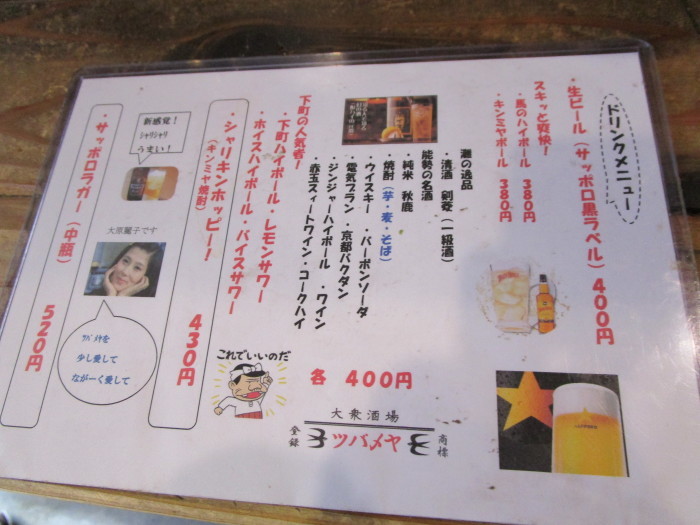 ドリンクメニュー
・生ビール(サッポロ黒ラベル)400円
スキッと爽快!
・馬のハイボール 380円
・キンミヤボール 380円
灘の逸品
・清酒 剣菱(一級酒)
能勢の名酒
・純米 秋鹿
・焼酎(芋・麦・そば)
・ウイスキー ・バーボンソーダ
・電気ブラン ・京都バクダン
・ジンジャーハイボール ・ワイン
・赤玉スィートワイン・コークハイ
下町の人気者!
・下町ハイボール・レモンサワー
・ホイスハイボール・バイスサワー
各 400円
・シャリキンホッピー!
(キンミヤ焼酎)
430円
新感覚!
シャリシャリ
うまい!
大原麗子です
ツバメヤを
少し愛して
ながーく愛して
・サッポロラガー(中瓶)
520円
これでいいのだ
大衆酒場
登録
ツバメヤ
商標